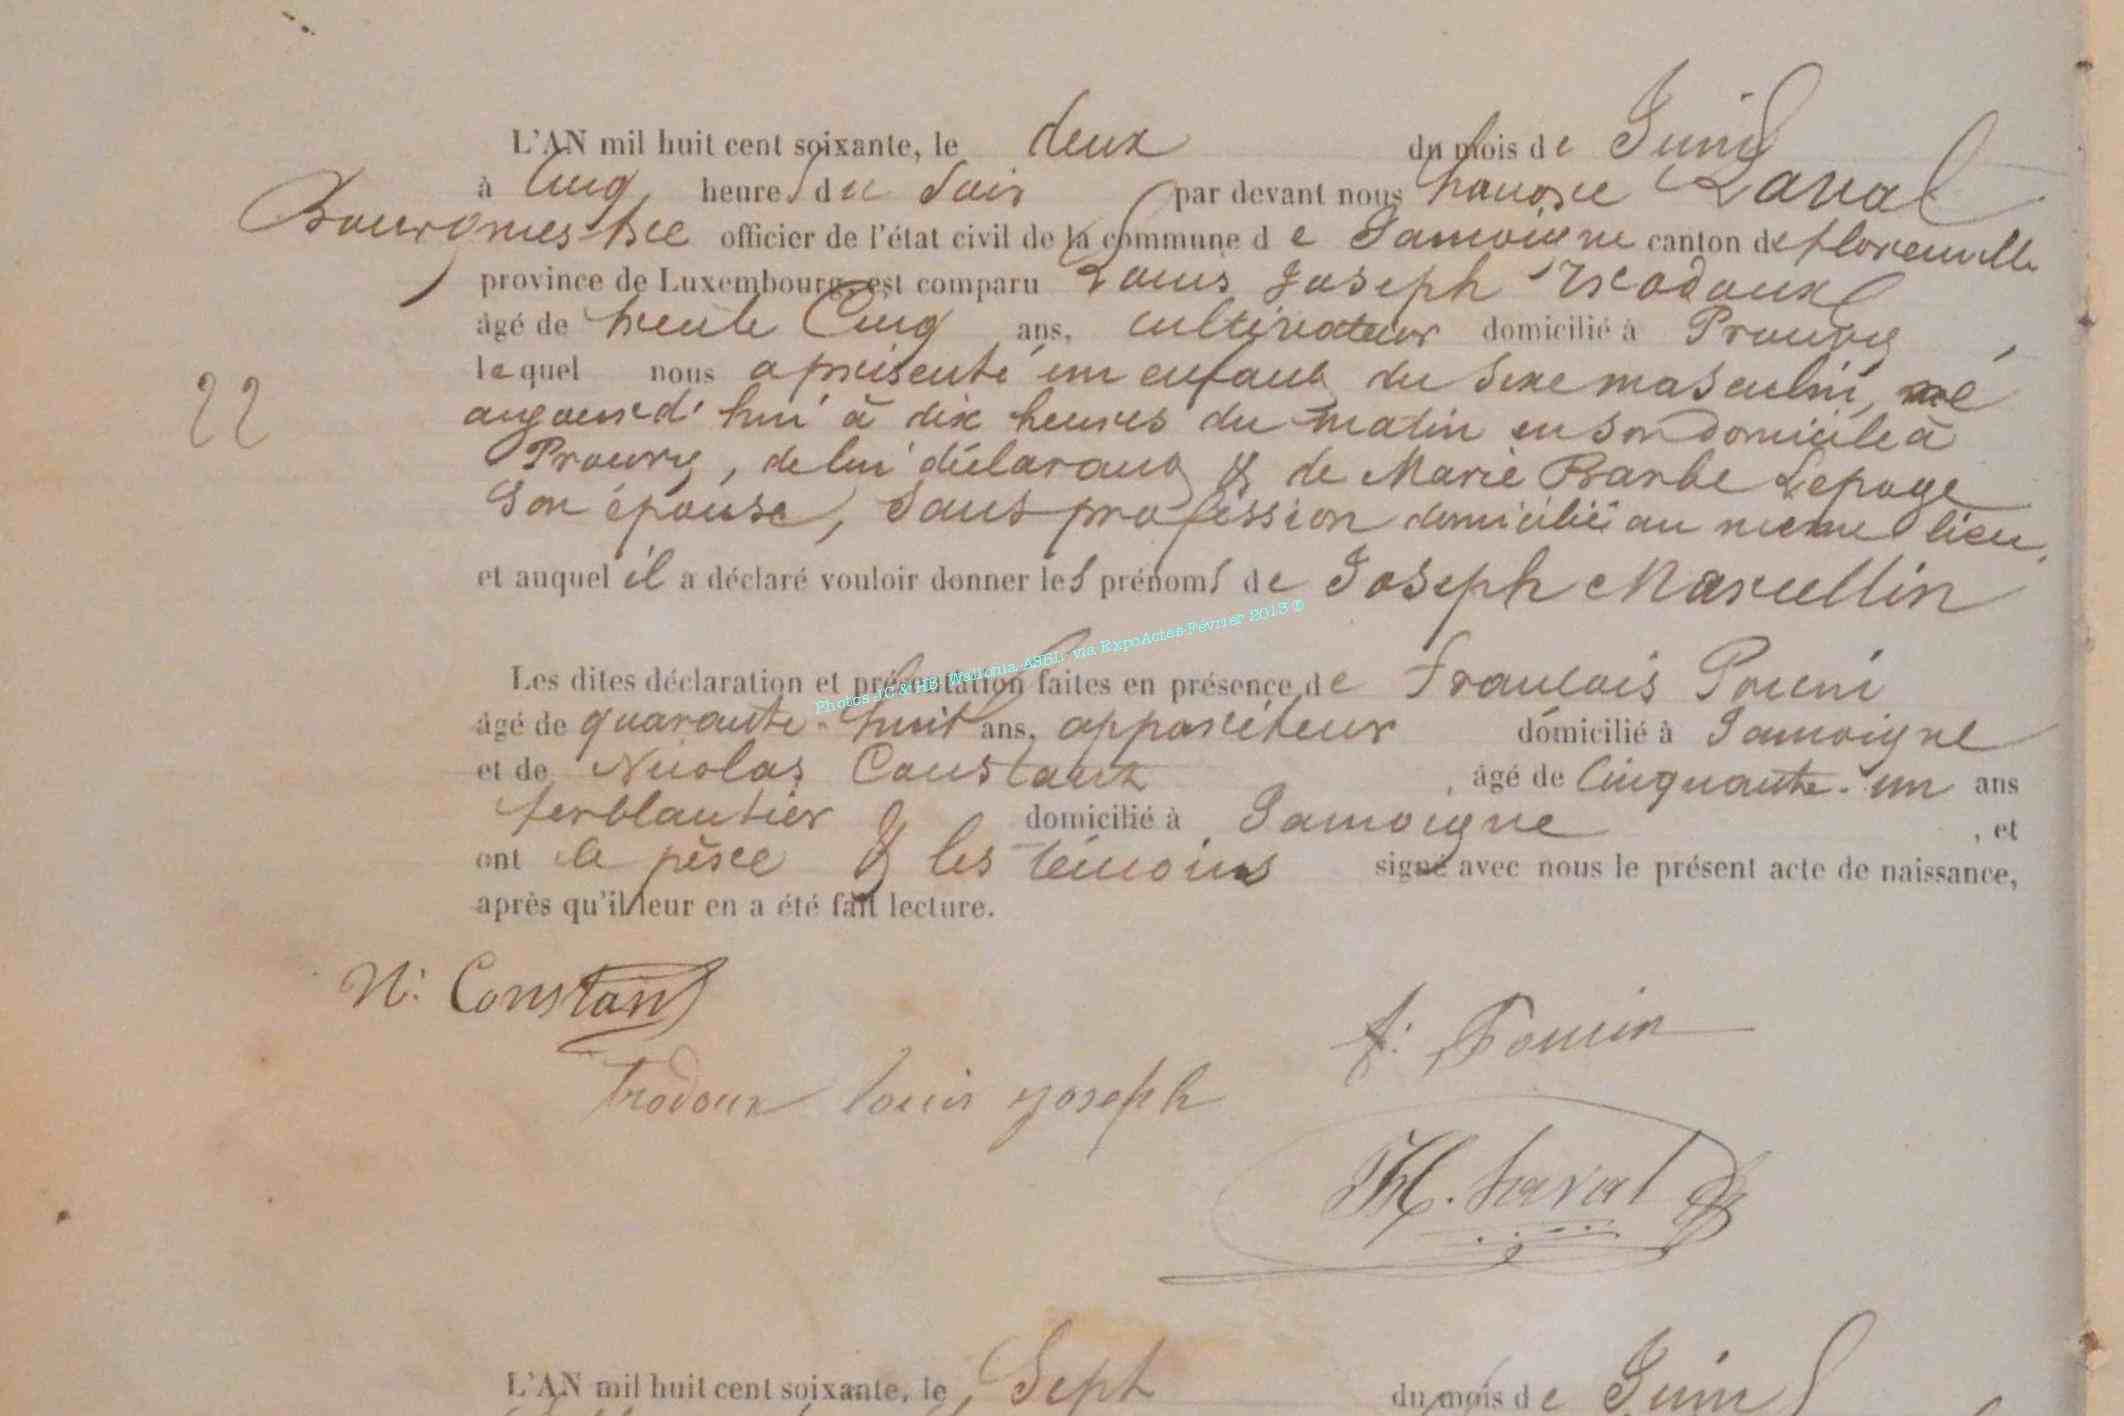 L'AN mil huit cent soixante, le deux du mois de Juin
à Cinq heures du Soir par devant nous Laval
Bourgmestre officier de l'état civil de la commune de Jamoigne canton de florenville
province de Luxembourg, est comparu Louis Joseph Trodoux
âgé de trente Cinq ans, cultivateur domicilié à Prouvy,
lequel nous a présenté un enfant du Sexe masculin, né
aujourd'hui à dix heures du matin en Son Domicile à
Prouvy, de lui déclarant & de Marie Barbe Lepage
Son épouse, Sans profession domiciliée au même lieu,
22
et auquel il a déclaré vouloir donner les prénoms de Joseph Marcellin
Photos JC & HB Wallonia ASBL via ExpoActes-Février 2013 ©
Les dites déclaration et présentation faites en présence de Francois Poncin
âgé de quarante-huit ans, appariteur domicilié à Jamoigne
et de Nicolas Constant, âgé de Cinquante-un ans
ferblantier domicilié à Jamoigne, et
ont le père & les témoins signé avec nous le présent acte de naissance,
après qu'il leur en a été fait lecture.
N: Constant
f: Poncin
trodoux louis joseph
H. Laval
L'AN mil huit cent soixante, le Sept du mois de Juin